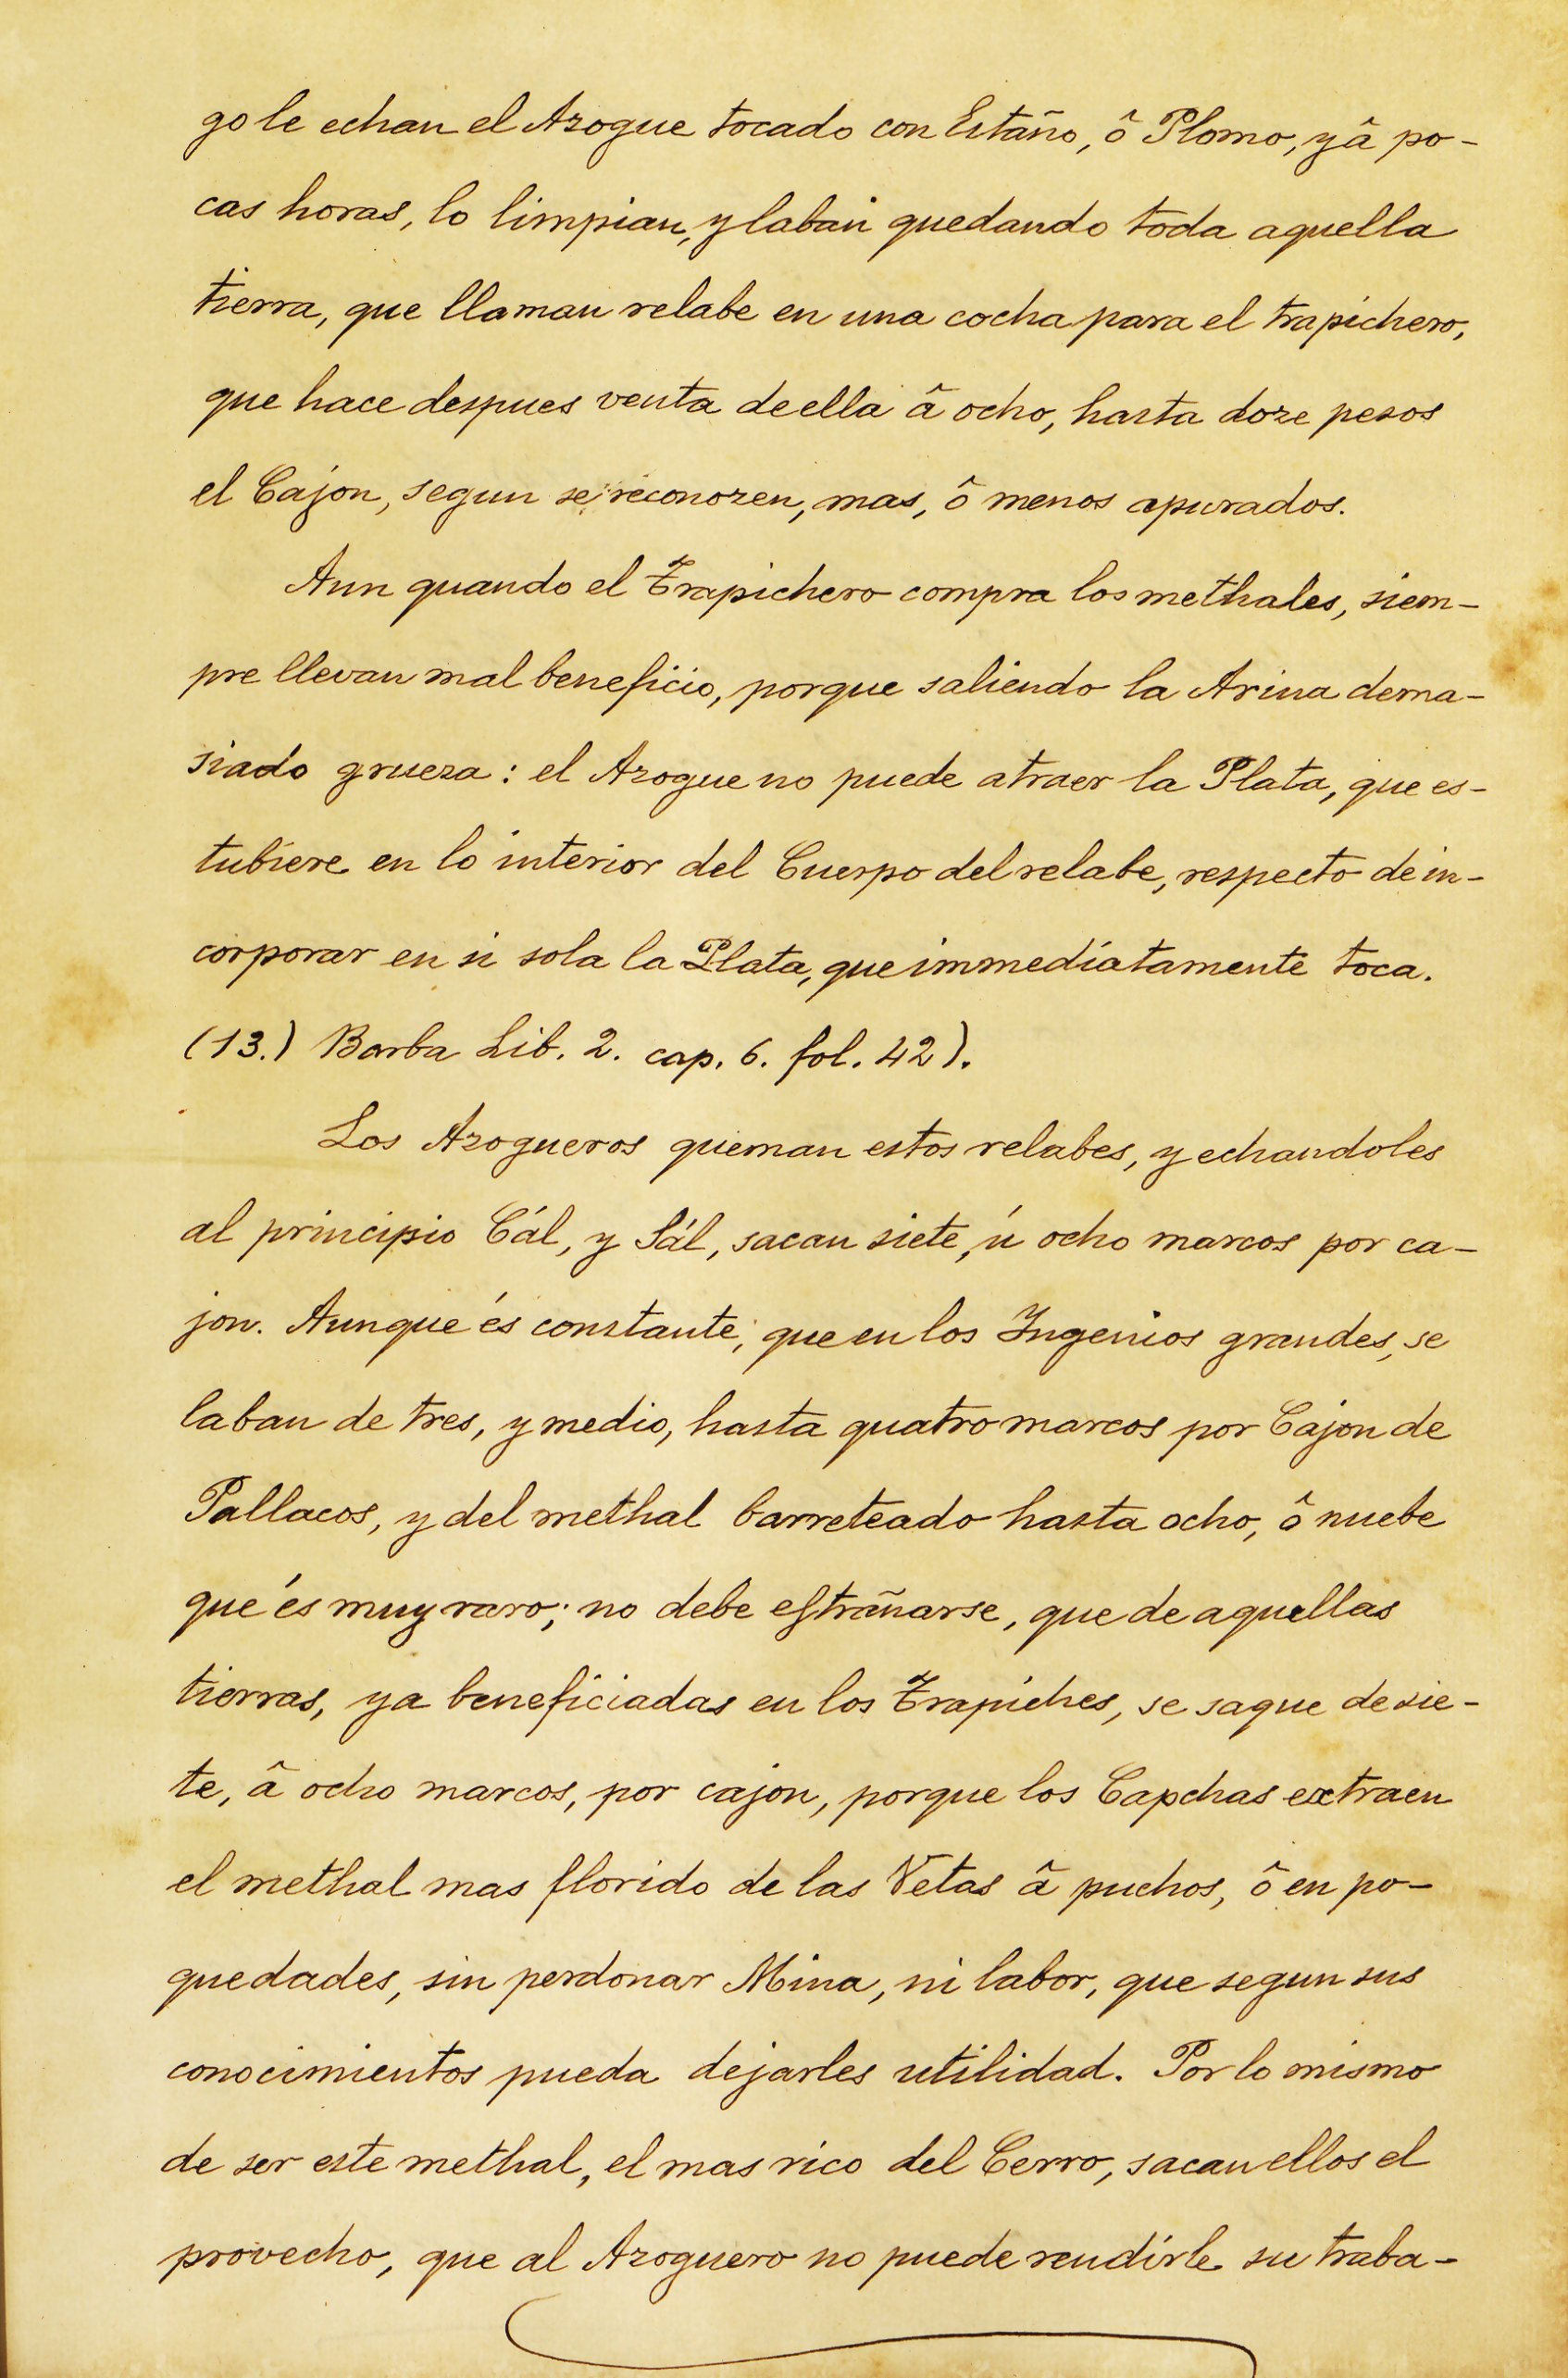 go le echan el Azogue tocado con Estaño, ô Plomo, y â po-
cas horas, lo limpian, y laban quedando toda aquella
tierra, que llaman relabe en una cocha para el trapichero,
que hace despues venta de ella â ocho, hasta doze pesos
el Cajon, segun se reconozen, mas, ô menos apurados.
Aun quando el Trapichero compra los methales, siem-
pre llevan mal beneficio, porque saliendo la Arina dema-
siado grueza: el Azogue no puede atraer la Plata, que es-
tubiere en lo interior del Cuerpo del relabe, respecto de in-
corporar en si sola la Plata, que immediatamente toca.
(13.) Barba Lib. 2. cap. 6. fol. 42).
Los Azogueros queman estos relabes, y echandoles
al principio Cál, y Sál, sacan siete, ú ocho marcos por ca-
jon. Aunque és constante, que en los Ingenios grandes, se
laban de tres, y medio, hasta quatro marcos por Cajon de
Pallacos, y del methal barreteado hasta ocho, ô nuebe
que és muy raro; no debe estrañarse, que de aquellas
tierras, ya beneficiadas en los Trapiches, se saque de sie-
te, â ocho marcos, por cajon, porque los Capchas extraen
el methal mas florido de las Vetas â puchos, ô en po-
quedades, sin perdonar Mina, ni labor, que segun sus
conocimientos pueda dejarles utilidad. Por lo mismo
de ser este methal, el mas rico del Cerro, sacan ellos el
provecho, que al Azoguero no puede rendirle su traba-